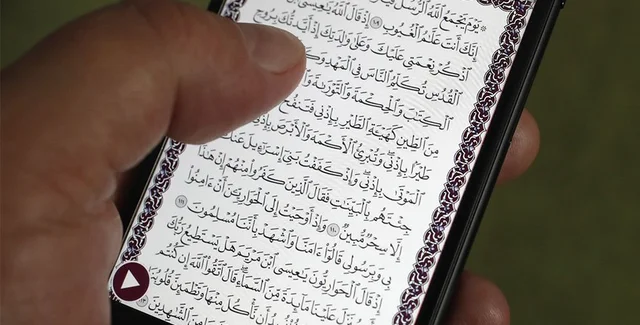 ۞ يَوْمَ يَجْمَعُ ٱللَّهُ ٱلرُّسُلَ
إِنَّكَ أَنتَ عَلَّٰمُ ٱلْغُيُوبِ ١٠٩ إِذْ قَالَ ٱللَّهُ يَٰعِيسَى
ٱذْكُرْ نِعْمَتِى عَلَيْكَ وَعَلَىٰ وَٰلِدَتِكَ إِذْ أَيَّدتُّكَ بِرُوحِ
ٱلْقُدُسِ تُكَلِّمُ ٱلنَّاسَ فِى ٱلْمَهْدِ
ٱلْكِتَٰبَ وَٱلْحِكْمَةَ وَٱلتَّوْرَىٰةَ
مِنَ ٱلطِّينِ كَهَيْـَٔةِ ٱلطَّيْرِ بِإِذْنِى فَتَنفُخُ
طَيْرًۢا بِإِذْنِى وَتُبْرِئُ ٱلْأَكْمَهَ وَٱلْأَبْرَصَ بِإِذْنِى
ٱلْمَوْتَىٰ بِإِذْنِى وَإِذْ كَفَفْتُ بَنِىٓ إِسْرَٰٓءِيلَ
جِئْتَهُم بِٱلْبَيِّنَٰتِ فَقَالَ ٱلَّذِينَ كَفَرُوا۟ مِنْهُمْ إِنْ هَٰذَآ
إِلَّا سِحْرٌ مُّبِينٌ ١١٠ وَإِذْ أَوْحَيْتُ إِلَى ٱلْحَوَارِيِّـۧنَ أَنْ ءَامِنُوا۟
بِى وَبِرَسُولِى قَالُوٓا۟ ءَامَنَّا وَٱشْهَدْ بِأَنَّنَا مُسْلِمُونَ ١١١
إِذْ قَالَ ٱلْحَوَارِيُّونَ يَٰعِيسَى ٱبْنَ مَرْيَمَ هَلْ يَسْتَطِيعُ رَبُّكَ
يُنَزِّلَ عَلَيْنَا مَآئِدَةً مِّنَ ٱلسَّمَآءِ قَالَ ٱتَّقُوا۟ ٱللَّهَ إِن كُنتُم
نُرِيدُ أَن نَّأْكُلَ مِنْهَا وَتَطْمَئِنَّ قُلُوبُنَا
مِنَ ٱلشَّٰهِدِينَ ١١٣